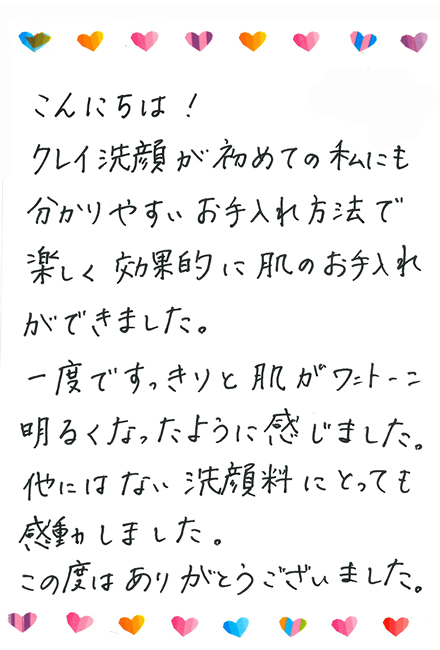 こんにちは！
クレイ洗顔が初めての私にも
分かりやすいお手入れ方法で
楽しく効果的に肌のお手入れ
ができました。
一度ですっきりと肌がワントーン
明るくなったように感じました。
他にはない洗顔料にとっても
感動しました。
この度はありがとうございました。